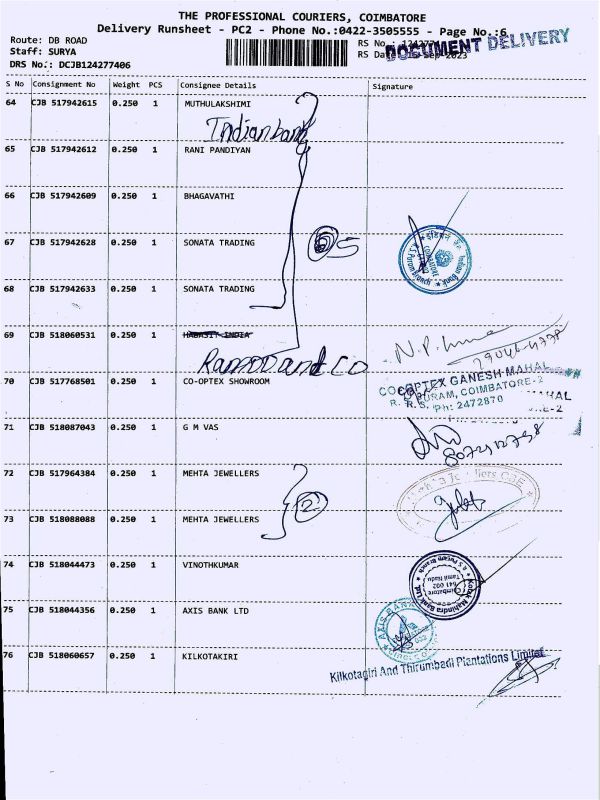 THE PROFESSIONAL COURIERS, COIMBATORE
Delivery Runsheet - PC2 - Phone No.:0422-3505555 - Page No.:6
Route: DB ROAD
Staff: SURYA
DRS No.: DCJB124277406
RS No.
RS Date 15 Sep 2023
DOCUMENT DELIVERY
S No Consignment No Weight PCS Consignee Details Signature
64 CJB 517942615 0.250 1 MUTHULAKSHMI
Indian bank
65 CJB 517942612 0.250 1 RANI PANDIYAN
66 CJB 517942609 0.250 1 BHAGAVATHI
67 CJB 517942628 0.250 1 SONATA TRADING
5
Indian Bank
68 CJB 517942633 0.250 1 SONATA TRADING
69 CJB 518060531 0.250 1 HABASIT INDIA
Ramoo and Co
70 CJB 517768501 0.250 1 CO-OPTEX SHOWROOM
CO-OPTEX GANESH MAHAL
R. S. PURAM, COIMBATORE-2
Ph: 2472870
71 CJB 518087043 0.250 1 G M VAS
72 CJB 517964384 0.250 1 MEHTA JEWELLERS
2
73 CJB 518088088 0.250 1 MEHTA JEWELLERS
74 CJB 518044473 0.250 1 VINOTHKUMAR
Kotak Mahindra Bank Ltd
R S Puram Branch
Coimbatore
641 002
Tamil Nadu
75 CJB 518044356 0.250 1 AXIS BANK LTD
AXIS BANK
76 CJB 518060657 0.250 1 KILKOTAKIRI
Kilkotagiri And Thirumbadi Plantations Limited